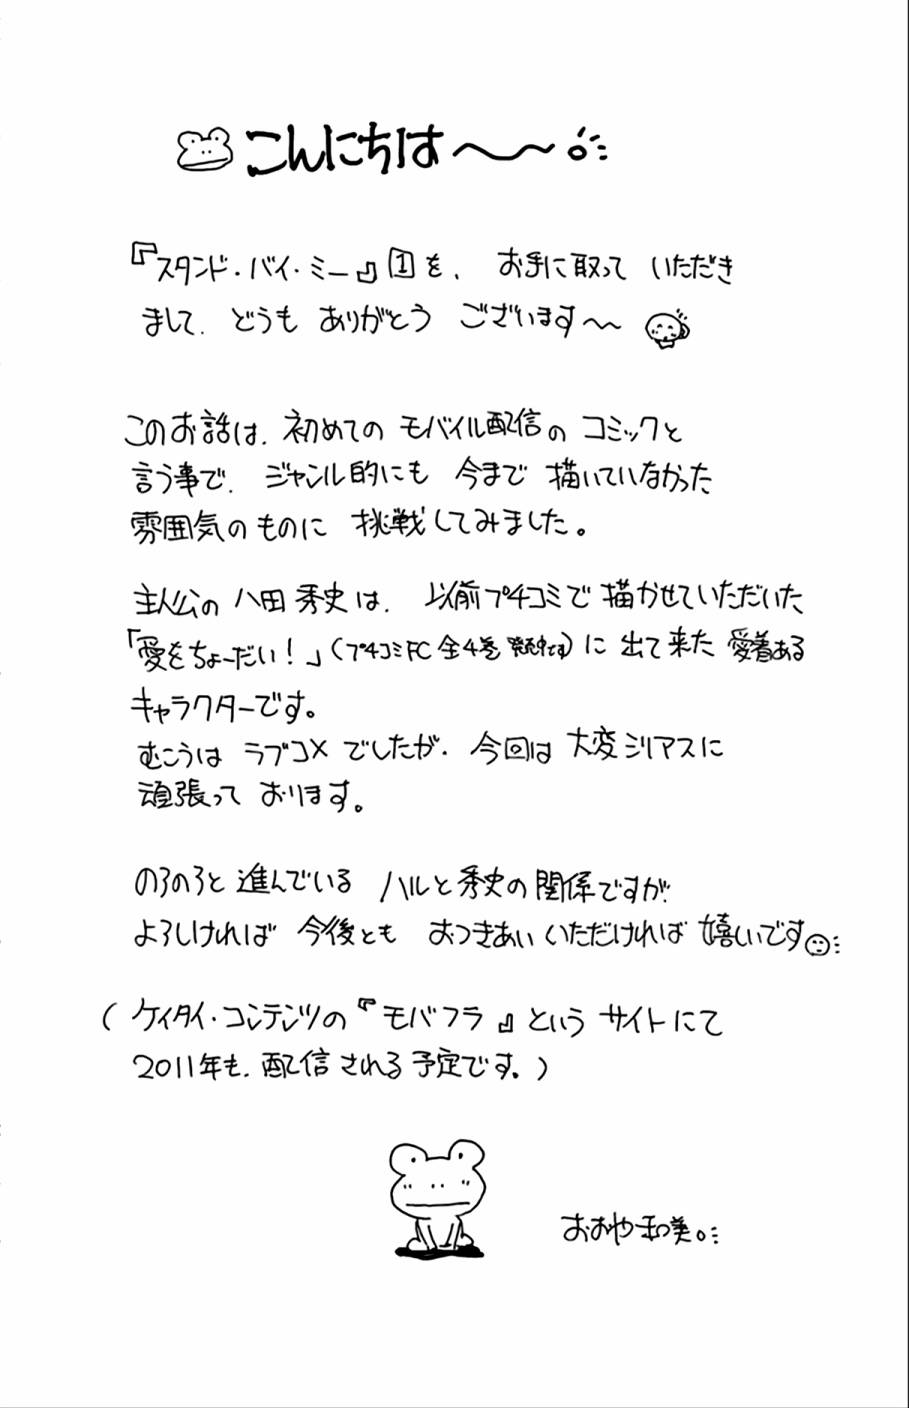 こんにちは〜〜
『スタンド・バイ・ミー』1を、お手に取っていただき
まして、どうもありがとうございます〜
このお話は、初めてのモバイル配信のコミックと
言う事で、ジャンル的にも今まで描いていなかった
雰囲気のものに挑戦してみました。
主人公の八田秀史は、以前プチコミで描かせていただいた
「愛をちょーだい!」(プチコミFC全4巻発売中です)に出て来た愛着ある
キャラクターです。
むこうはラブコメでしたが、今回は大変シリアスに
頑張っております。
のろのろと進んでいるハルと秀史の関係ですが、
よろしければ今後ともおつきあいいただければ嬉しいです
(ケイタイ・コンテンツの『モバフラ』というサイトにて
2011年も、配信される予定です。)
おおや和美。